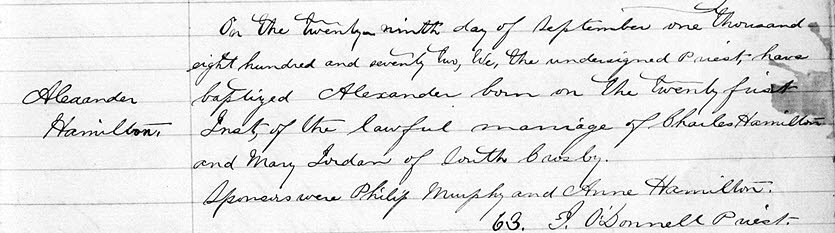 On the twenty ninth day of September one thousand
eight hundred and seventy two, We, the undersigned Priest, have
Alexander baptized Alexander born on the twenty first
Hamilton. Inst, of the lawful marriage of Charles Hamilton
and Mary Jordan of South Crosby.
Sponsors were Philip Murphy and Anne Hamilton.
63. J. O'Donnell Priest.